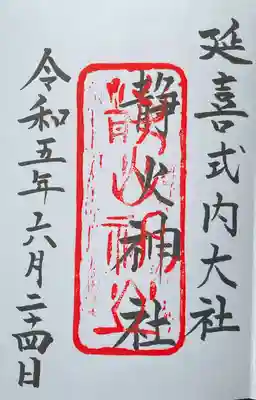 延喜式内大社
静火神社
静火神社
令和五年六月二十四日